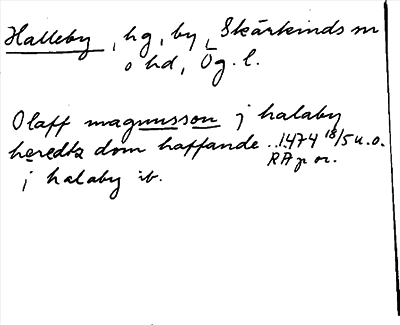 Halleby, hg, by, Skärkinds sn
o hd, Ög. l.
Olaff magnusson j halaby
heredtz dom haffande .. 1474 18/5 u.o.
RAp or.
j halaby ib.